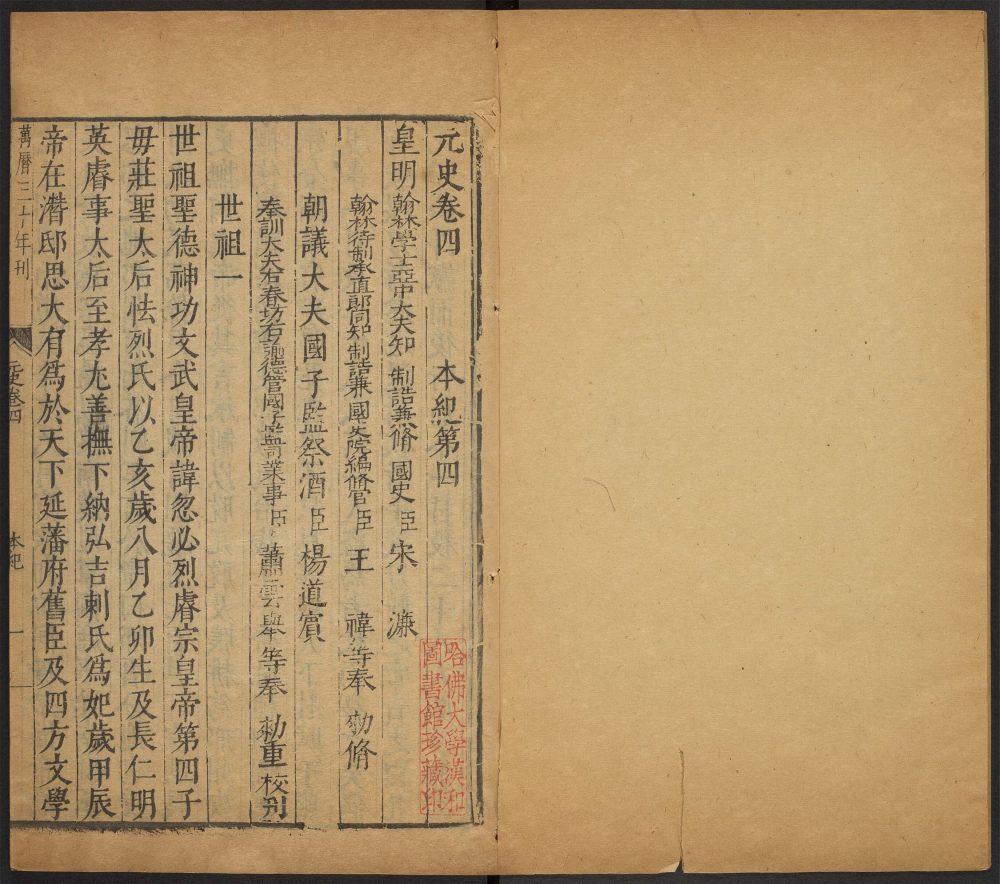 元史卷四 本紀第四
皇明翰林學士亞中大夫知 制誥兼脩 國史 臣 宋 濂
翰林待制承直郎同知 制誥兼 國史院編脩官 臣 王 禕等奉 勑脩
朝議大夫國子監祭酒 臣 楊道賓
奉訓大夫右春坊右諭德管國子監司業事 臣 蕭雲舉等奉 勑重校刋
世祖一
世祖聖德神功文武皇帝諱忽必烈睿宗皇帝第四子
毋莊聖太后怯烈氏以乙亥歲八月乙卯生及長仁明
英睿事太后至孝尤善撫下納弘吉剌氏爲妃歲甲辰
帝在潛邸思大有爲於天下延藩府舊臣及四方文學
萬曆三十年刊
元史卷四 本紀 一
哈佛大學漢和
圖書館珍藏印